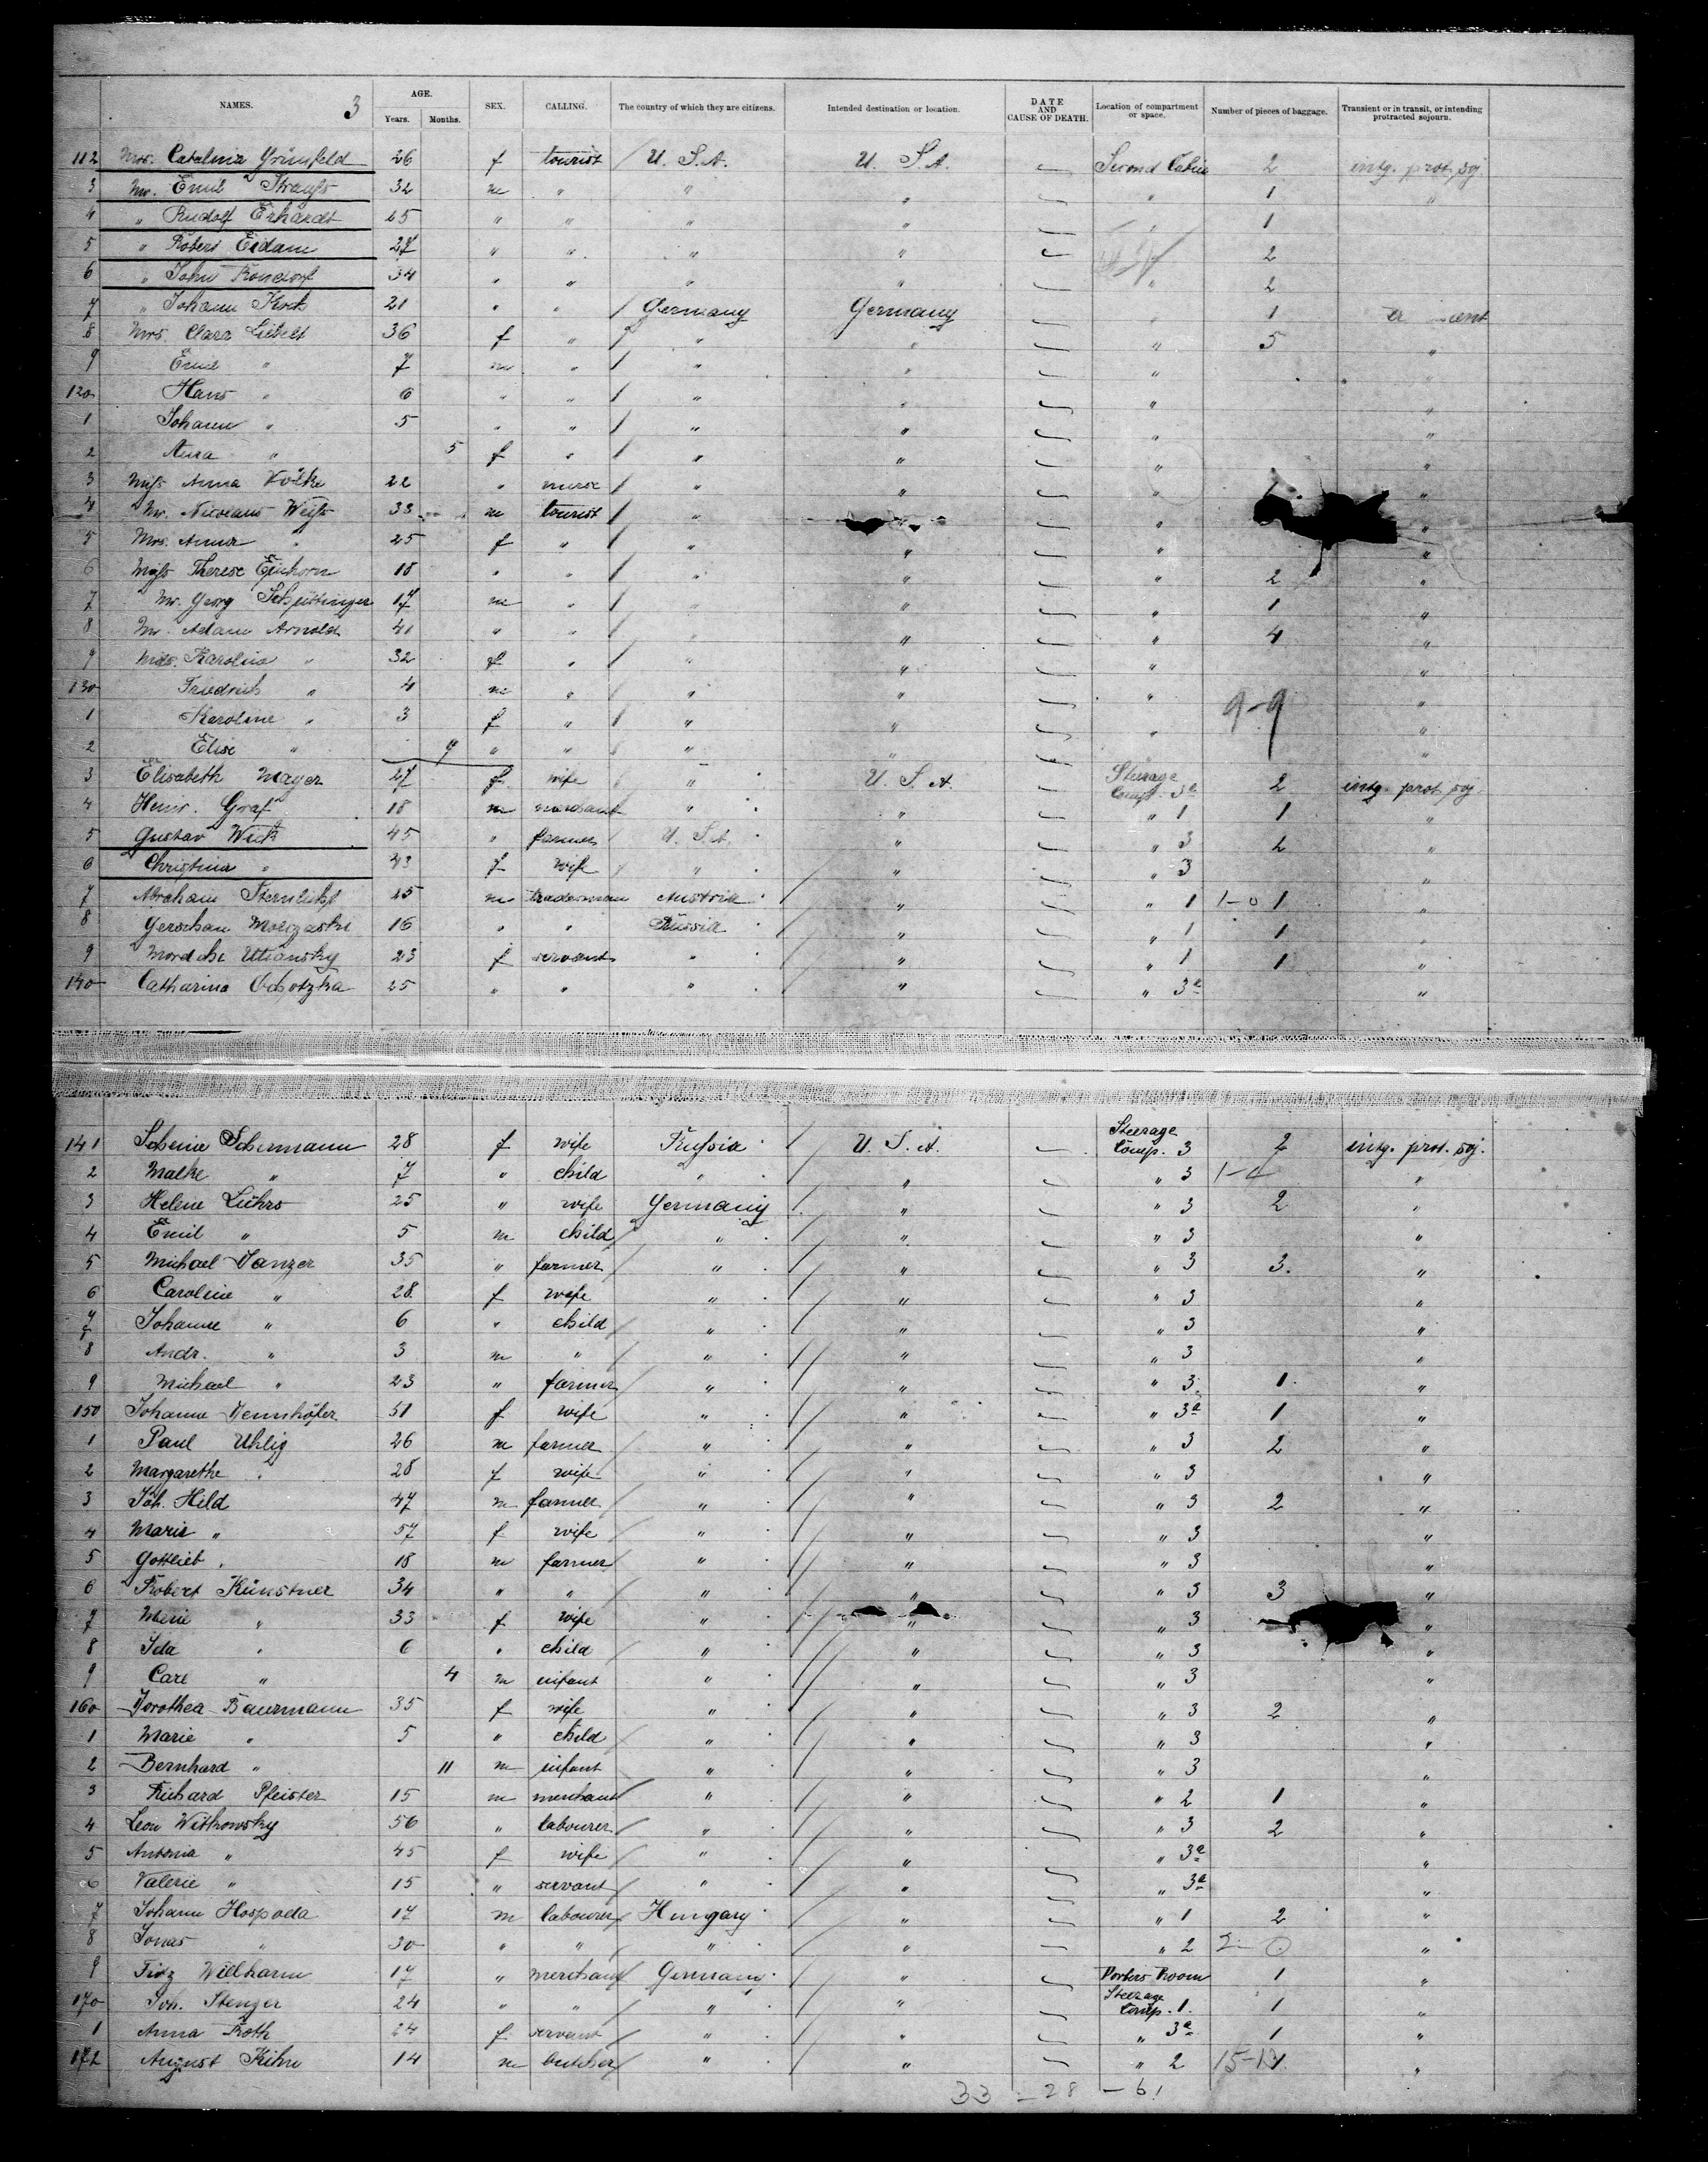 3
NAMES. AGE. SEX. CALLING. The country of which they are citizens. Intended destination or location. DATE AND CAUSE OF DEATH. Location of compartment or space. Number of pieces of baggage. Transient or in transit, or intending protracted sojourn.
Years. Months.
112 Mrs. Catalina Grünfeld 26 f tourist U. S. A. U. S. A. Second Cabin 2 intg. prot. soj.
3 Mr. Emil Strauss 32 m " " " " 1 "
4 " Rudolf Erhardt 25 " " " " " 1
5 " Robert Eidam 27 " " " " 2
6 " John 34 " " " " " 2
7 " Johann Koch 21 " " Germany Germany " 1
8 Mrs. Clara Liebelt 36 f " " " " 5 "
9 Emil " 7 m " " " " "
120 Hans " 6 " " " " " "
1 Johann " 5 " " " " " "
2 " 5 f " " " " "
3 Miss Anna 22 " nurse " " " "
4 Mr. Nicolaus Weiss 33 m tourist " " "
5 Mrs. Anna " 25 f " " " " "
6 Miss Therese Einhorn 18 " " " " " 2 "
7 Mr. Georg 17 m " " " " 1 "
8 Mr. Adam Arnold 41 " " " " " 4 "
9 Mrs. Karolina " 32 f " " " " "
130 Friedrich " 4 m " " " " "
1 Karoline " 3 f " " " " 9-9 "
2 Elise " 9 " " " " "
3 Elisabeth Mayer 27 f wife " U. S. A. Steerage Comp. 3a 2 intg. prot. soj.
4 Heinr. Graf 18 m merchant " " " 1 1 "
5 Gustav Weik 45 " farmer U. S. A. " " 3 2 "
6 Christina " 43 f wife " " " 3 "
7 Abraham Sternlicht 25 m tradesman Austria " " 1 1-0 1 "
8 Gerschan 16 " " Russia " " 1 1 "
9 Mordche Utiansky 23 f servant " " " 1 1 "
140 Catharina Ochotzka 25 " " " " " 3a "
141 Scheine Schermann 28 f wife Russia U. S. A. Steerage Comp. 3 2 intg. prot. soj.
2 Malke " 7 " child " " " 3 "
3 Helene Lührs 25 " wife Germany " " 3 2 "
4 Emil " 5 m child " " " 3 "
5 Michael Danzer 35 " farmer " " " 3 3. "
6 Caroline " 28 f wife " " " 3 "
7 Johanne " 6 " child " " " 3 "
8 Andr. " 3 m " " " " 3 "
9 Michael " 23 " farmer " " " 3 1 "
150 Johanne Dennhöfer 51 f wife " " " 3a 1 "
1 Paul Uhlig 26 m farmer " " " 3 2 "
2 Margarethe " 28 f wife " " " 3 "
3 Joh. Hild 47 m farmer " " " 3 2 "
4 Marie " 57 f wife " " " 3 "
5 Gottlieb " 18 m farmer " " " 3 "
6 Robert Künstner 34 " " " " " 3 3 "
7 Marie " 33 f wife " " " 3 "
8 Ida " 6 " child " " " 3 "
9 Carl " 4 m infant " " " 3 "
160 Dorothea Bauermann 35 f wife " " " 3 2 "
1 Marie " 5 " child " " " 3 "
2 Bernhard " 11 m infant " " " 3 "
3 Richard Pfeister 15 m merchant " " " 2 1 "
4 Leon Witkowsky 56 " labourer " " " 3 2 "
5 Antonia " 45 f wife " " " 3a "
6 Valerie " 15 " servant " " " 3a "
7 Johann Hospoda 17 m labourer Hungary " " 1 2 "
8 Jonas " 30 " " " " " 2 2-0 "
9 Fritz Willhann 17 " merchant Germany " Porters Room 1 "
170 Joh. Stenger 24 " " " " Steerage Comp. 1. 1 "
1 Anna Roth 24 f servant " " " 3a 1 "
172 August Kihn 14 m butcher " " " 2 15-13 "
33 - 28 - 61